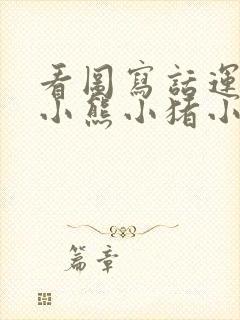 看圖寫話運
小熊小猪小
篇章